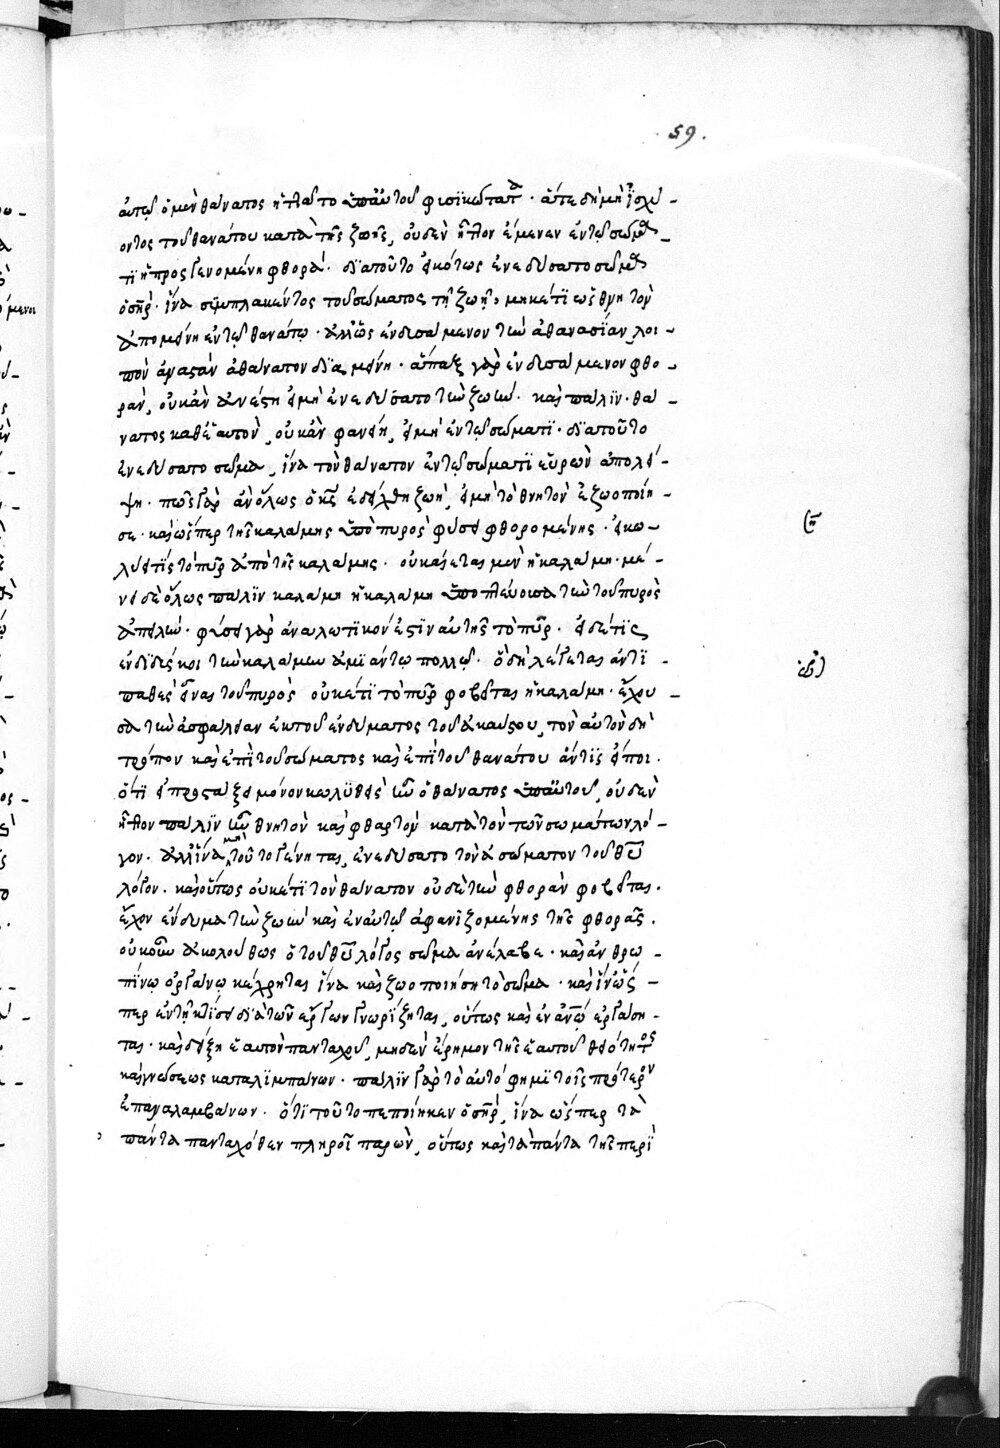 αὐτῷ ὁ μὲν θάνατος ἡττᾶτο ὑπ' αὐτοῦ φυσικώτατα· ἅτε δὴ μὴ ἰσχύ-
οντος τοῦ θανάτου κατὰ τῆς ζωῆς, οὐδὲν ἧττον ἔμενεν ἐν τῷ σώμα-
τι ἡ προσγενομένη φθορά· διατοῦτο εἰκότως ἐνεδύσατο σῶμα
ὁ σ̅η̅ρ̅· ἵνα συμπλακέντος τοῦ σώματος τῇ ζωῇ, μηκέτι ὡς θνητὸν
ἀπομείνη ἐν τῷ θανάτῳ· ἀλλ' ὡς ἐνδυσάμενον τὴν ἀθανασίαν, λοι-
πὸν ἀναστὰν ἀθάνατον διαμείνη· ἅπαξ γὰρ ἐνδυσάμενον φθο-
ρὰν, οὐκ ἂν ἀνέστη εἰ μὴ ἐνεδύσατο τὴν ζωήν· καὶ πάλιν· θά-
νατος καθ' ἑαυτὸν, οὐκ ἂν φανείη, εἰ μὴ ἐν τῷ σώματι· διατοῦτο
ἐνεδύσατο σῶμα, ἵνα τὸν θάνατον ἐν τῷ σώματι εὑρὼν ἀπαλεί-
ψη· πῶς γὰρ ἂν ὅλως ὁ κ̅ς̅ ἐδείχθη ζωὴ, εἰ μὴ τὸ θνητὸν ἐζωοποίη-
σε· καὶ ὥσπερ τῆς καλάμης ὑπὸ πυρὸς φύσει φθειρομένης· εἰ κω-
λύει τὶς τὸ πῦρ ἀπὸ τῆς καλάμης· οὐ καίεται μὲν ἡ καλάμη· μέ-
νει δὲ ὅλως πάλιν καλάμη ἡ καλάμη ὑποπτεύουσα τὴν τοῦ πυρὸς
ἀπειλήν· φύσει γὰρ ἀναλωτικόν ἐστιν αὐτῆς τὸ πῦρ· εἰ δέ τις
ἐνδιδύσκοι τὴν καλάμην ἀμιάντῳ πολλῷ· ὃ δὴ λέγεται ἀντι-
παθὲς εἶναι τοῦ πυρὸς οὐκέτι τὸ πῦρ φοβεῖται ἡ καλάμη· ἔχου-
σα τὴν ἀσφάλειαν ἐκ τοῦ ἐνδύματος τοῦ ἀκαύστου, τὸν αὐτὸν δὴ
τρόπον καὶ ἐπὶ τοῦ σώματος καὶ ἐπὶ τοῦ θανάτου ἄν τις εἴποι·
ὅτι εἰ προστάξει μόνον κωλυθεὶς ἦν ὁ θάνατος ὑπ' αὐτοῦ, οὐδὲν
ἧττον πάλιν ἦν θνητὸν καὶ φθαρτὸν κατὰ τὸν τῶν σωμάτων λό-
γον· ἀλλ' ἵνα μὴ τοῦτο γένηται, ἐνεδύσατο τὸν ἀσώματον τοῦ θ̅υ̅
λόγον· καὶ οὕτως οὐκέτι τὸν θάνατον οὐδὲ τὴν φθορὰν φοβεῖται·
ἔχον ἔνδυμα τὴν ζωὴν καὶ ἐν αὐτῷ ἀφανιζομένης τῆς φθορᾶς·
οὐκοῦν ἀκολούθως ὁ τοῦ θ̅υ̅ λόγος σῶμα ἀνέλαβε· καὶ ἀνθρω-
πίνῳ ὀργάνῳ κέχρηται ἵνα καὶ ζωοποιήση τὸ σῶμα· καὶ ἵν' ὥσ-
περ ἐν τῇ κτίσει διὰ τῶν ἔργων γνωρίζηται, οὕτως καὶ ἐν ἀ̅ν̅ῳ̅ ἐργάση-
ται· καὶ δείξη ἑαυτὸν πανταχοῦ, μηδὲν ἔρημον τῆς ἑαυτοῦ θειότητος
καὶ γνώσεως καταλιμπάνων· πάλιν γὰρ τὸ αὐτό φημι τοῖς πρότερον
ἐπαναλαμβάνων· ὅτι τοῦτο πεποίηκεν ὁ σ̅η̅ρ̅, ἵνα ὥσπερ τὰ
πάντα πανταχόθεν πληροῖ παρὼν, οὕτως καὶ τὰ πάντα τῆς περὶ